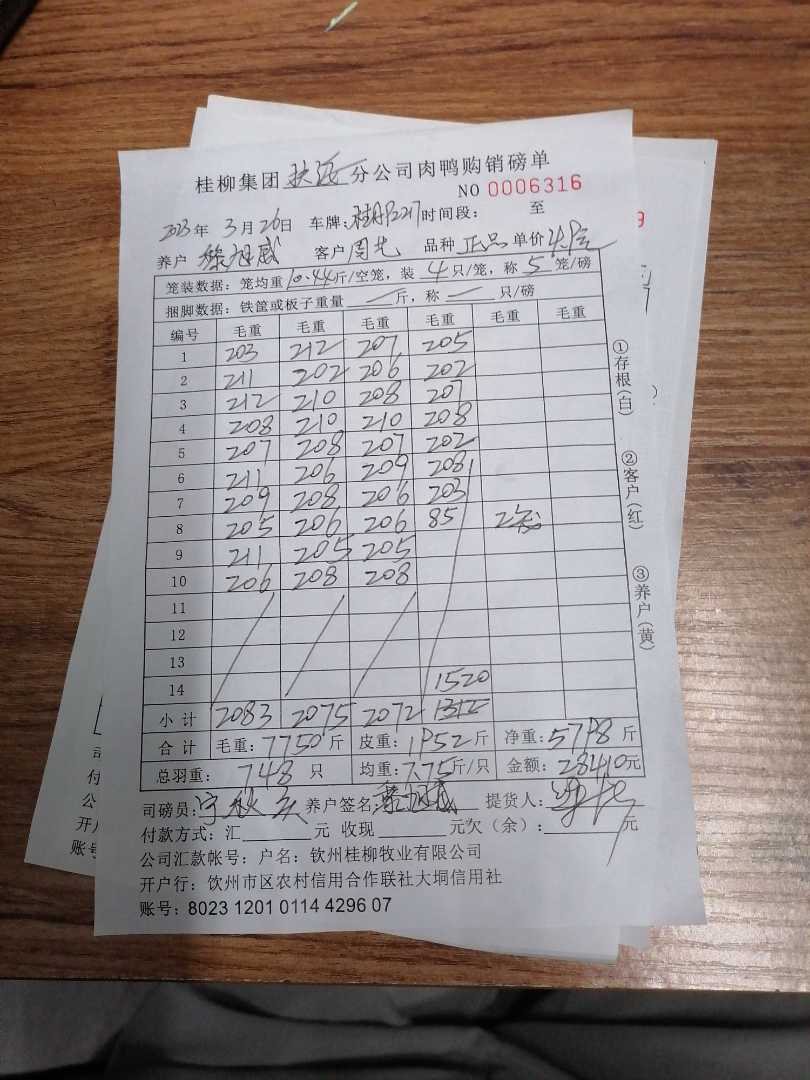 桂柳集团 扶绥 分公司肉鸭购销磅单
NO 0006316
2023年 3月26日 车牌: 时间段: 至
养户 客户 周 品种 正品 单价 4.9元
笼装数据: 笼均重 10.44 斤/空笼, 装 4 只/笼, 称 5 笼/磅
捆脚数据: 铁筐或板子重量 — 斤, 称 — 只/磅
编号 毛重 毛重 毛重 毛重 毛重 毛重
1 203 212 207 205
2 211 202 206 202
3 212 210 208 207
4 208 210 210 208
5 207 208 207 202
6 211 206 209 208
7 209 208 206 203
8 205 206 206 85 2
9 211 205 205
10 206 208 208
11
12
13
14 1520
小计 2083 2075 2072
合计 毛重: 7750 斤 皮重: 1952 斤 净重: 5798 斤
总羽重: 748 只 均重: 7.75 斤/只 金额: 28410 元
司磅员: 宁秋 养户签名: 提货人:
付款方式: 汇 元 收现 元欠(余): 元
公司汇款帐号: 户名: 钦州桂柳牧业有限公司
开户行: 饮州市区农村信用合作联社大垌信用社
账号: 8023 1201 0114 4296 07
①存根(白)
②客户(红)
③养户(黄)
司
付
公
开户
账号
9